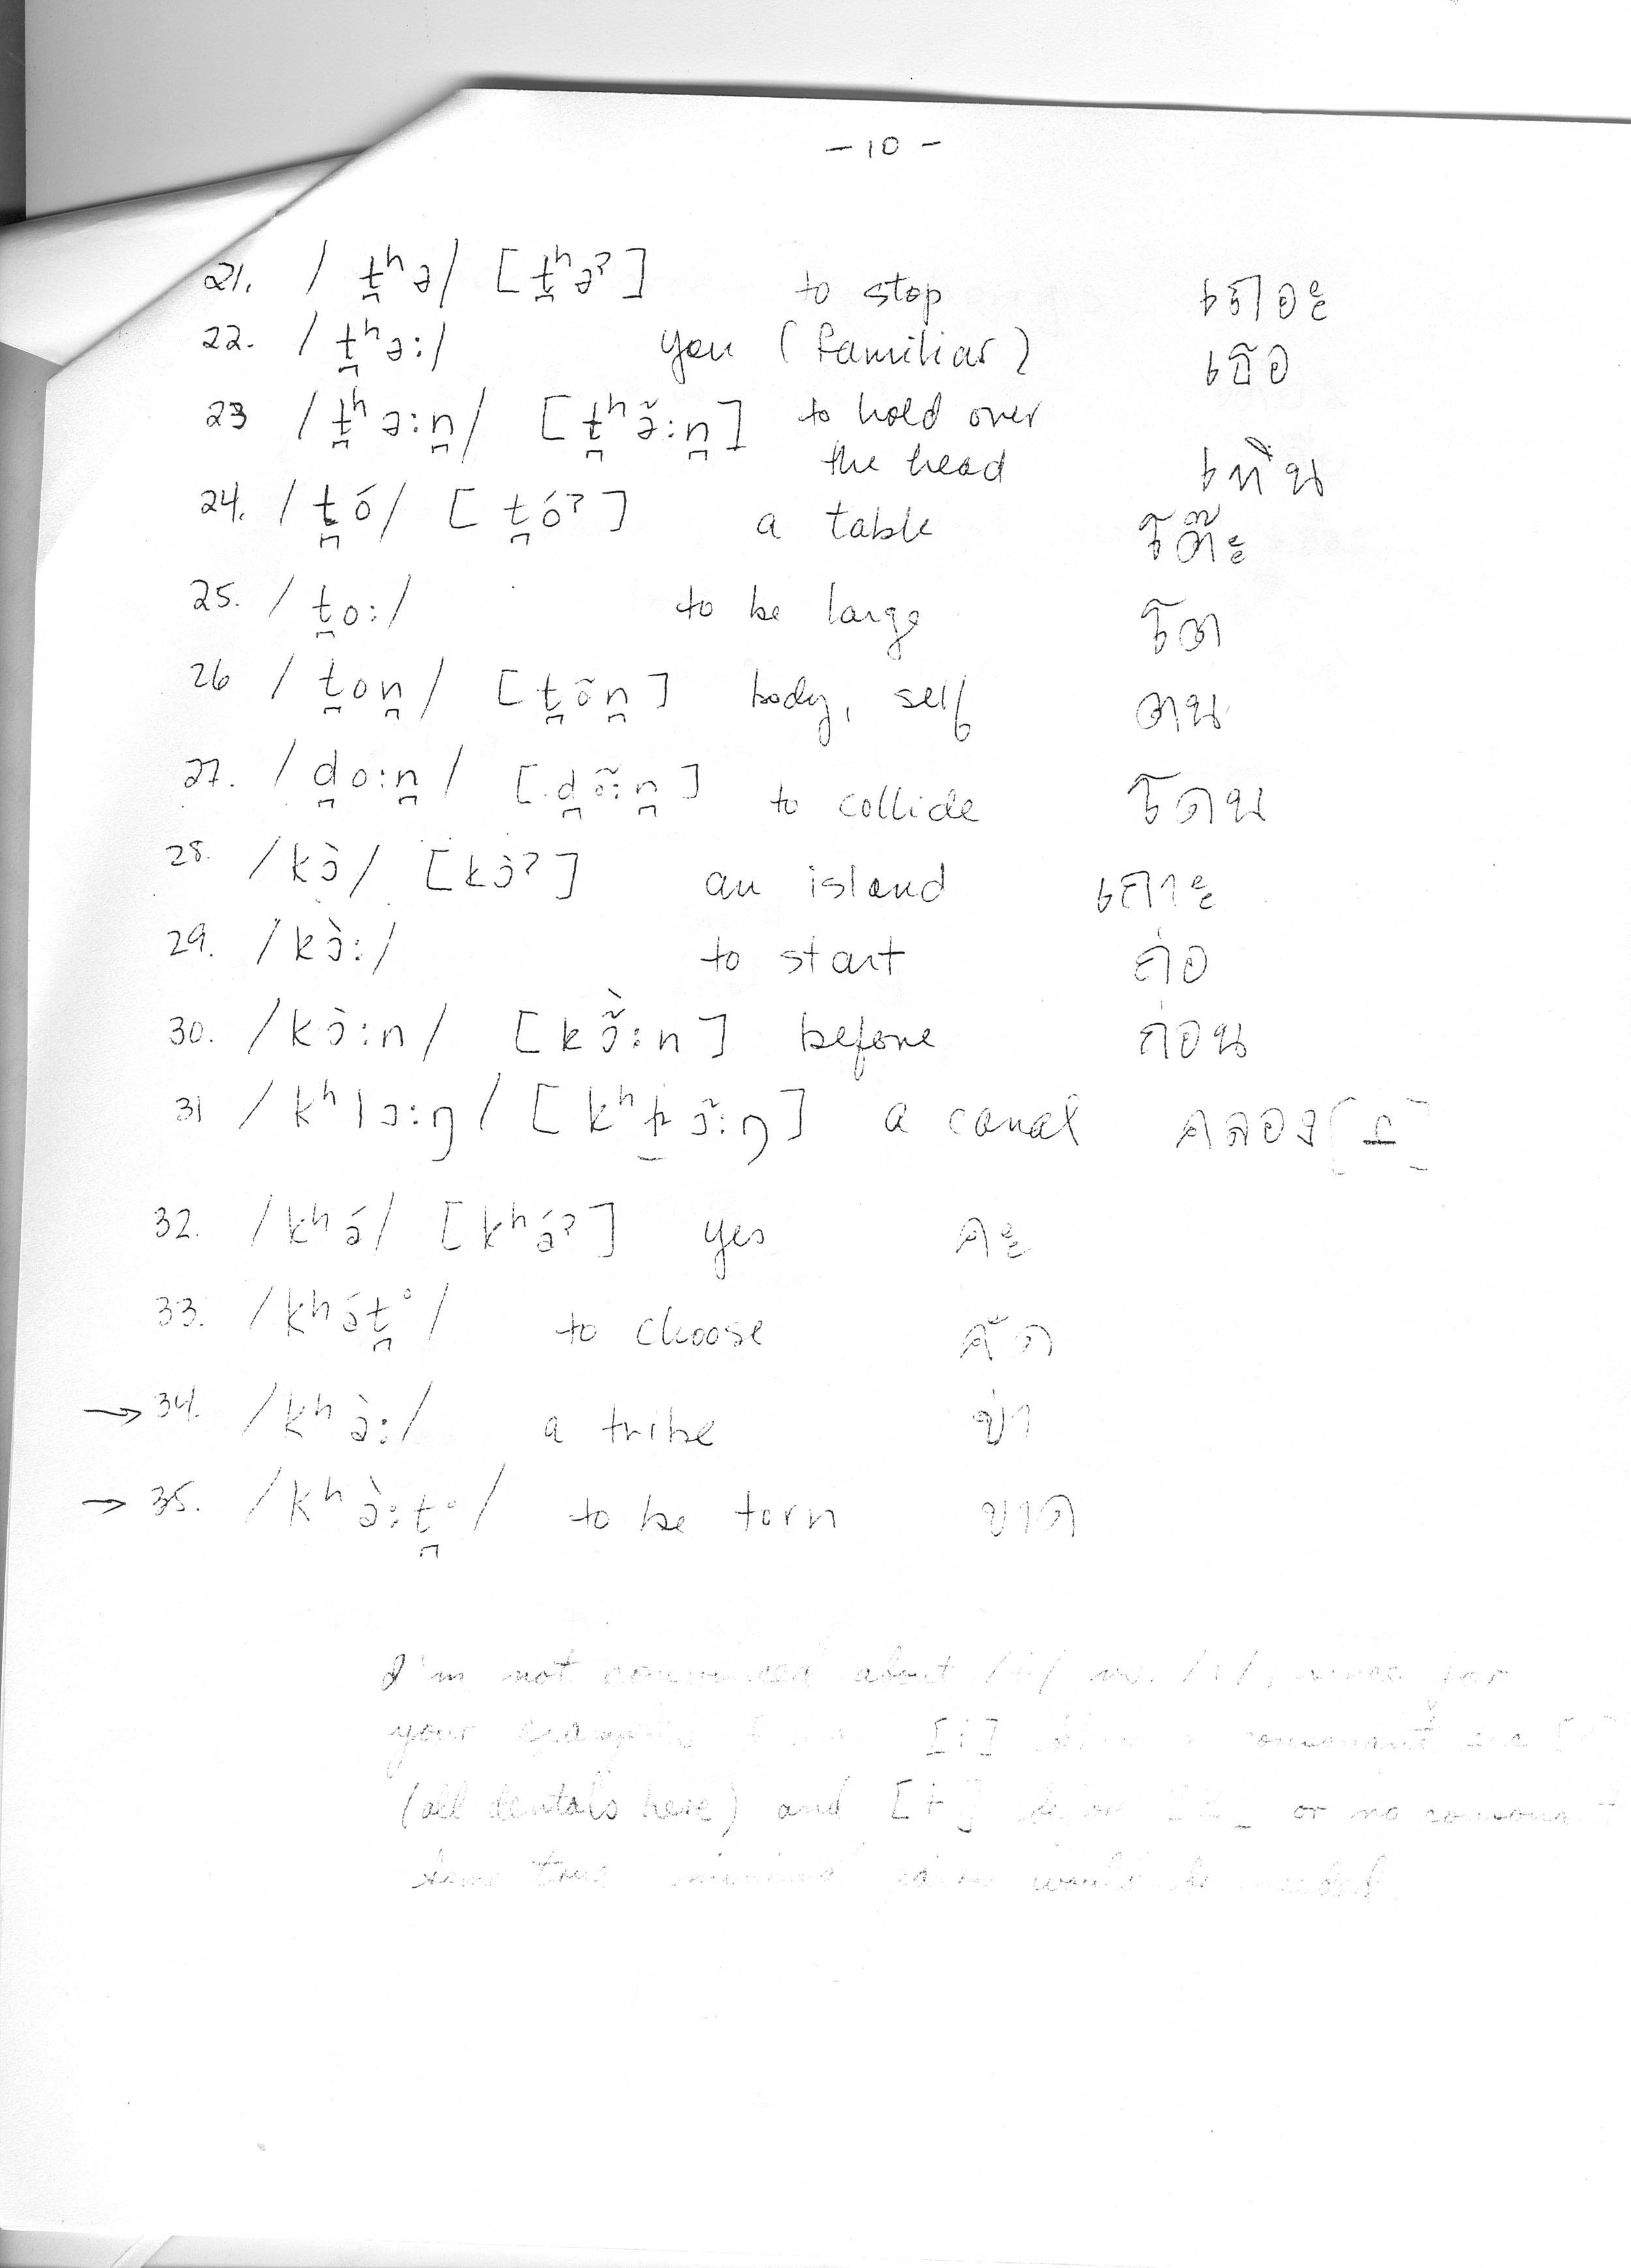 - 10 -
21. / t̪ʰə/ [t̪ʰəʔ] to stop เถอะ
22. / t̪ʰə:/ you (familiar) เธอ
23 /t̪ʰə:n̪/ [t̪ʰə̃:n̪] to hold over
the head เทิน
24. / t̪ó/ [ t̪óʔ] a table โต๊ะ
25. / t̪o:/ to be large โต
26 / t̪on̪/ [t̪õn̪] body, self ตน
27. / d̪o:n̪/ [d̪õ:n̪] to collide โดน
28. /kɔ̀/ [kɔ̀ʔ] an island เกาะ
29. /kɔ̀:/ to start ก่อ
30. /kɔ̀:n/ [kɔ̃̀:n] before ก่อน
31 /kʰlɔ:ŋ/ a canal คลอง
32. /kʰə́/ [kʰə́ʔ] yes คะ
33. /kʰə́t̪°/ to choose คัด
→ 34. /kʰə̀:/ a tribe ข่า
→ 35. /kʰə̀:t̪°/ to be torn ขาด
I'm not convinced about for
your [i] consonant
(all dentals here) and [ɨ] or no consonant
would be needed